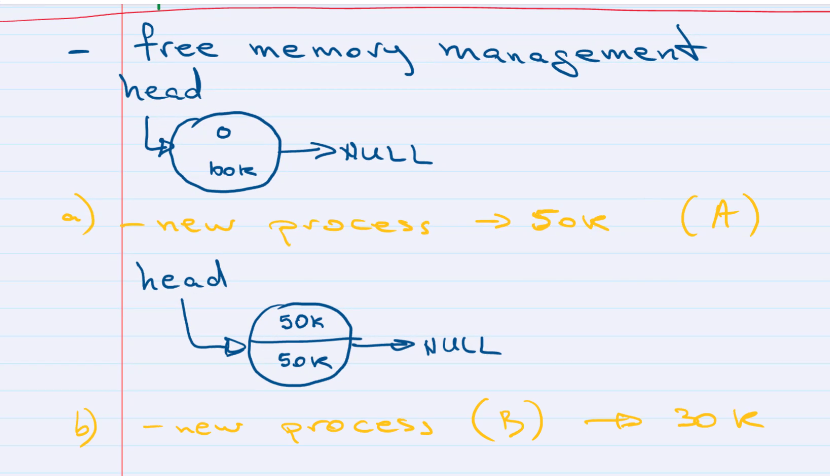 - free memory management
head
0
100k → NULL
a) - new process → 50k (A)
head
50k
50k → NULL
b) - new process (B) → 30k